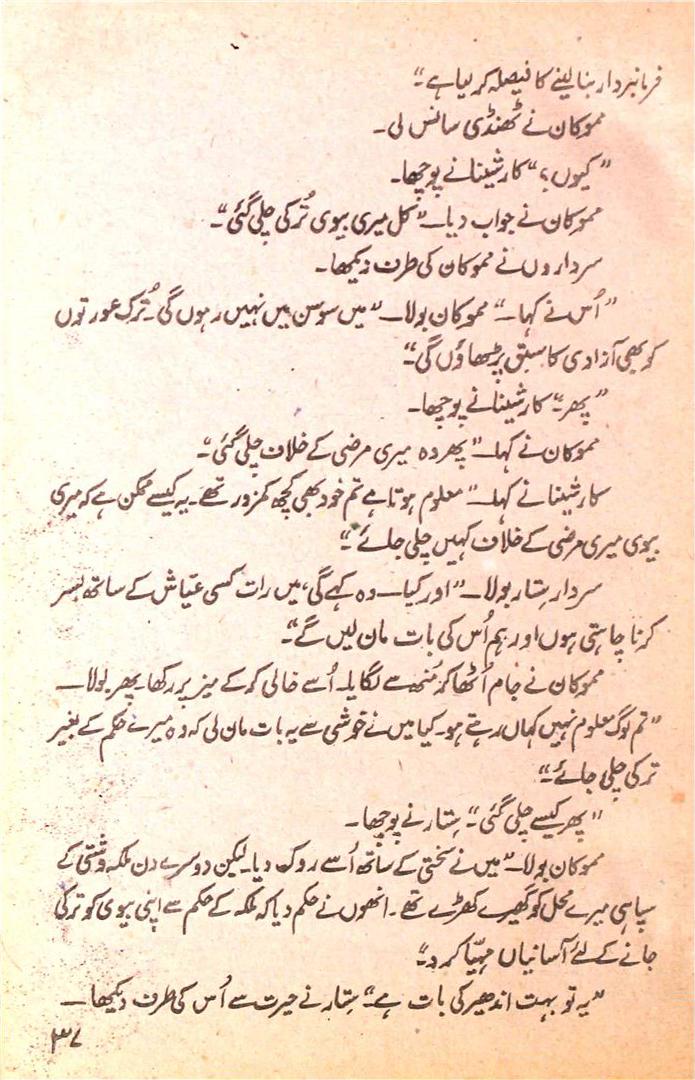 فرمانبردار بنا لینے کا فیصلہ کر لیا ہے۔“
مموکان نے ٹھنڈی سانس لی۔
”کیوں؟“ کارشینا نے پوچھا۔
مموکان نے جواب دیا۔ ”کل میری بیوی تُرکی چلی گئی“۔
سرداروں نے مموکان کی طرف دیکھا۔
”اُس نے کہا۔“ مموکان بولا۔ ”میں سوسن میں نہیں رہوں گی۔ تُرک عورتوں
کو بھی آزادی کا سبق پڑھاؤں گی۔“
”پھر“۔ کارشینا نے پوچھا۔
مموکان نے کہا۔ ”پھر وہ میری مرضی کے خلاف چلی گئی“۔
کارشینا نے کہا۔ ”معلوم ہوتا ہے تم خود بھی کچھ کمزور تھے۔ یہ کیسے ممکن ہے کہ میری
بیوی میری مرضی کے خلاف کہیں چلی جائے“۔
سردار ستار بولا۔ ”اور کیا۔ وہ کہے گی، میں رات کسی عیّاش کے ساتھ بسر
کرنا چاہتی ہوں اور ہم اُس کی بات مان لیں گے“۔
مموکان نے جام اُٹھا کر مُنھ سے لگایا۔ اُسے خالی کر کے میز پر رکھا پھر بولا۔
”تم لوگ معلوم نہیں کہاں رہتے ہو۔ کیا میں نے خوشی سے یہ بات مان لی کہ وہ میرے حکم کے بغیر
ترکی چلی جائے۔“
”پھر کیسے چلی گئی“۔ ستار نے پوچھا۔
مموکان بولا۔ ”میں نے سختی کے ساتھ اُسے روک دیا۔ لیکن دوسرے دن ملکہ وشتی کے
سپاہی میرے محل کو گھیرے کھڑے تھے۔ انھوں نے حکم دیا کہ ملکہ کے حکم سے اپنی بیوی کو ترکی
جانے کے لئے آسانیاں مہیّا کر دو“۔
”یہ تو بہت اندھیر کی بات ہے“۔ ستار نے حیرت سے اُس کی طرف دیکھا۔
۳۷